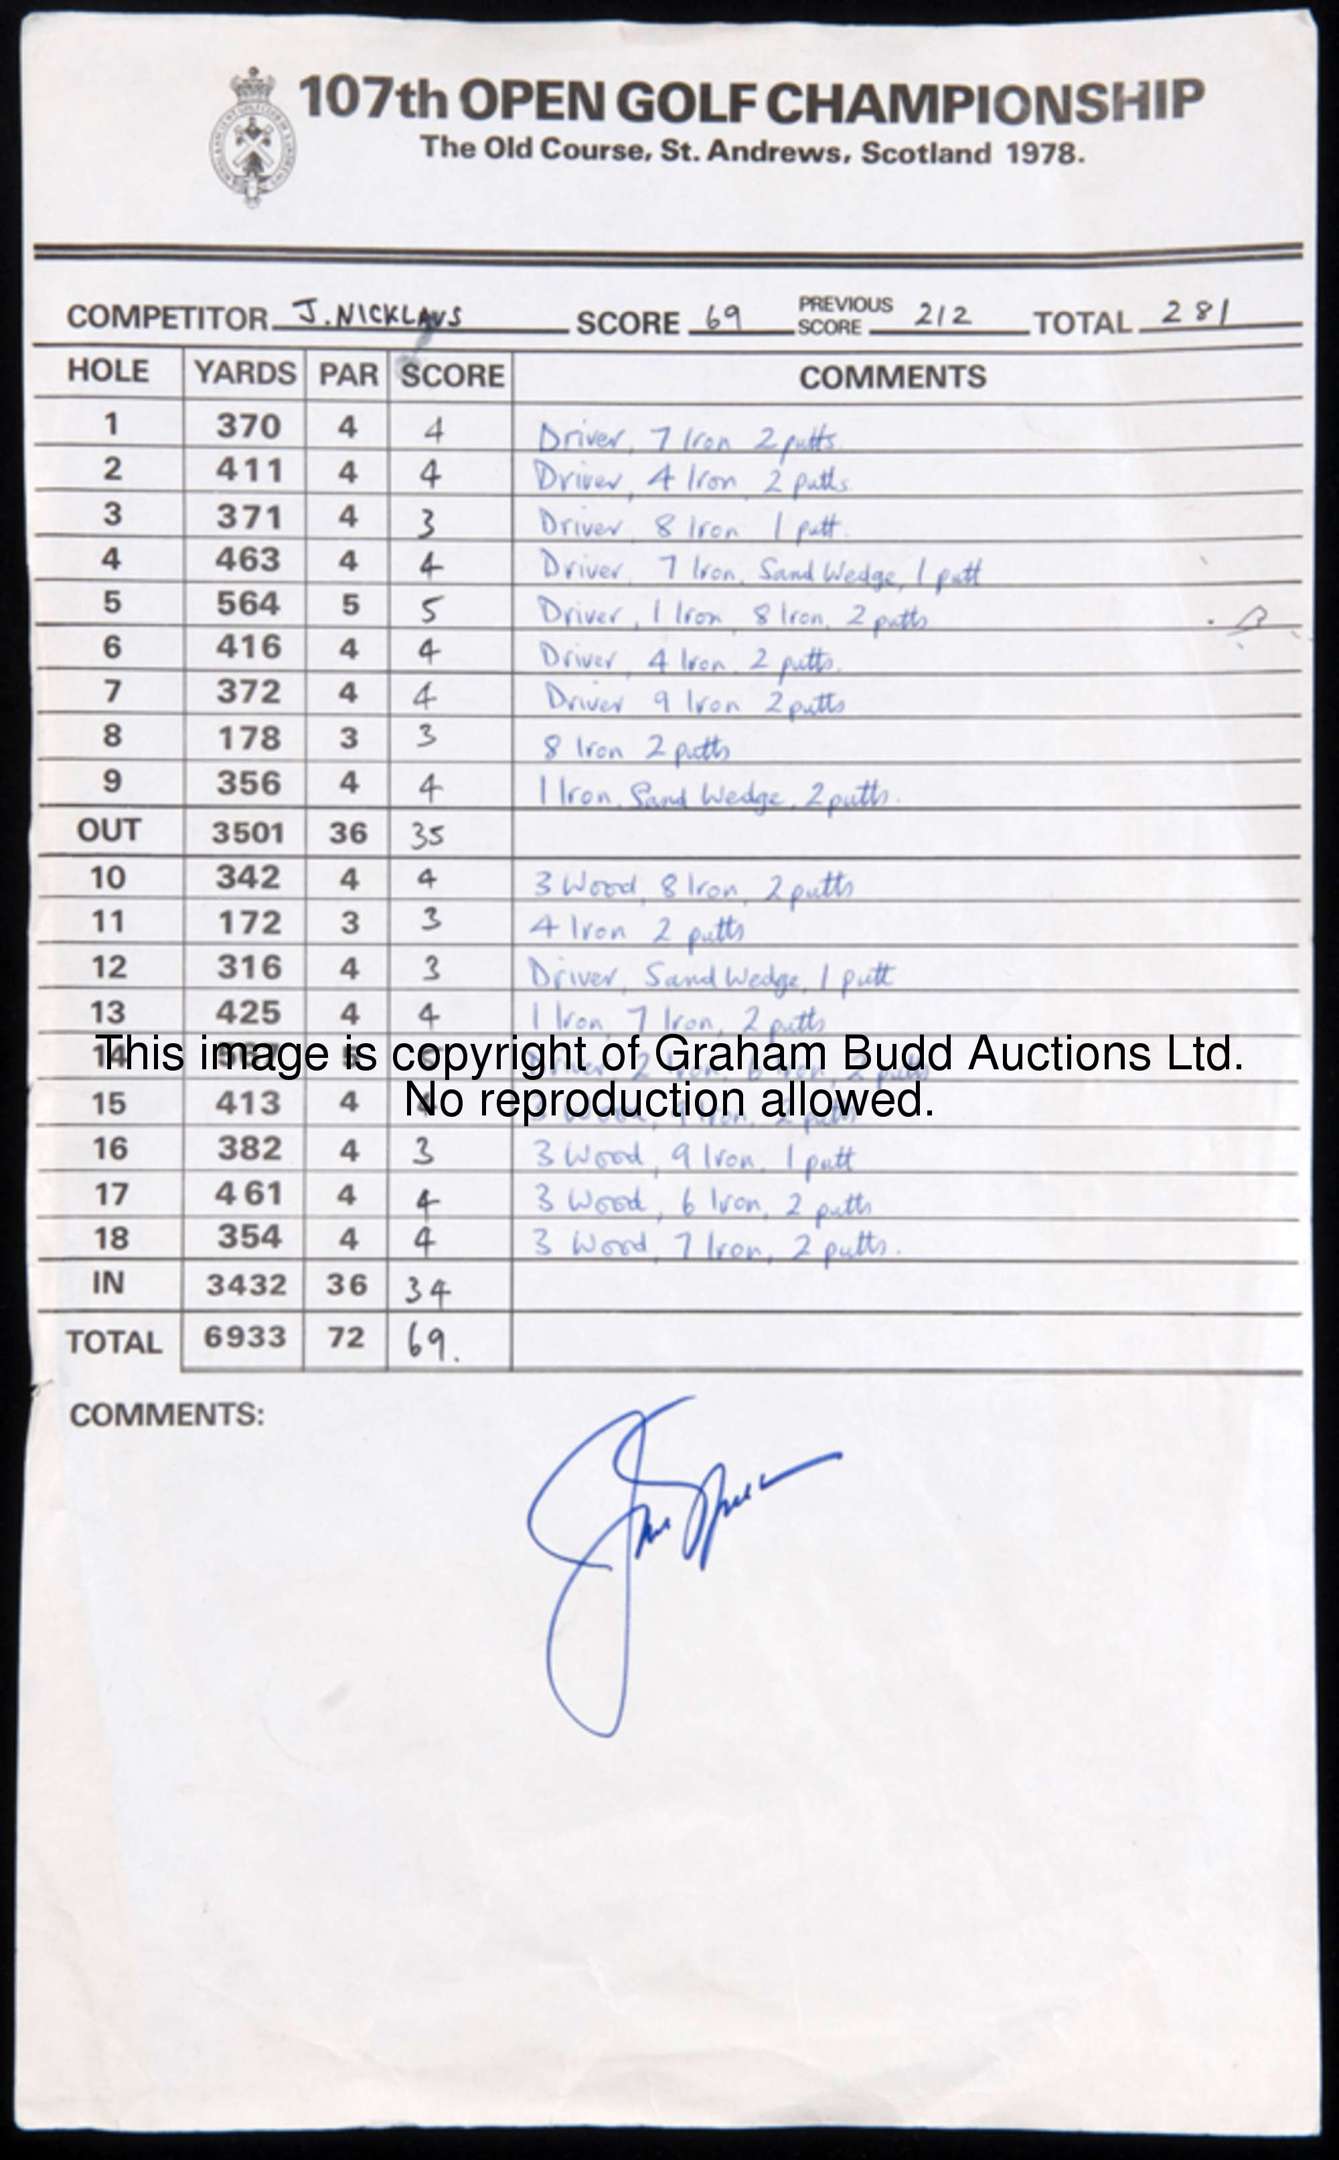 107th OPEN GOLF CHAMPIONSHIP
The Old Course, St. Andrews, Scotland 1978.
COMPETITOR J. NICKLAUS SCORE 69 PREVIOUS SCORE 212 TOTAL 281
HOLE YARDS PAR SCORE COMMENTS
1 370 4 4 Driver, 7 Iron 2 putts.
2 411 4 4 Driver, 4 Iron, 2 putts.
3 371 4 3 Driver, 8 Iron 1 putt.
4 463 4 4 Driver, 7 Iron, Sand Wedge, 1 putt
5 564 5 5 Driver, 1 Iron, 8 Iron, 2 putts
6 416 4 4 Driver, 4 Iron, 2 putts.
7 372 4 4 Driver 9 Iron 2 putts
8 178 3 3 8 Iron 2 putts
9 356 4 4 1 Iron, Sand Wedge, 2 putts.
OUT 3501 36 35
10 342 4 4 3 Wood, 8 Iron, 2 putts
11 172 3 3 4 Iron 2 putts
12 316 4 3 Driver, Sand Wedge, 1 putt
13 425 4 4 1 Iron, 7 Iron, 2 putts
This image is copyright of Graham Budd Auctions Ltd.
14 5 5 Driver 2 Iron, 6 Iron, 2 putts
No reproduction allowed.
15 413 4 4 3 Wood, 9 Iron, 2 putts
16 382 4 3 3 Wood, 9 Iron, 1 putt
17 461 4 4 3 Wood, 6 Iron, 2 putts
18 354 4 4 3 Wood, 7 Iron, 2 putts.
IN 3432 36 34
TOTAL 6933 72 69.
COMMENTS: